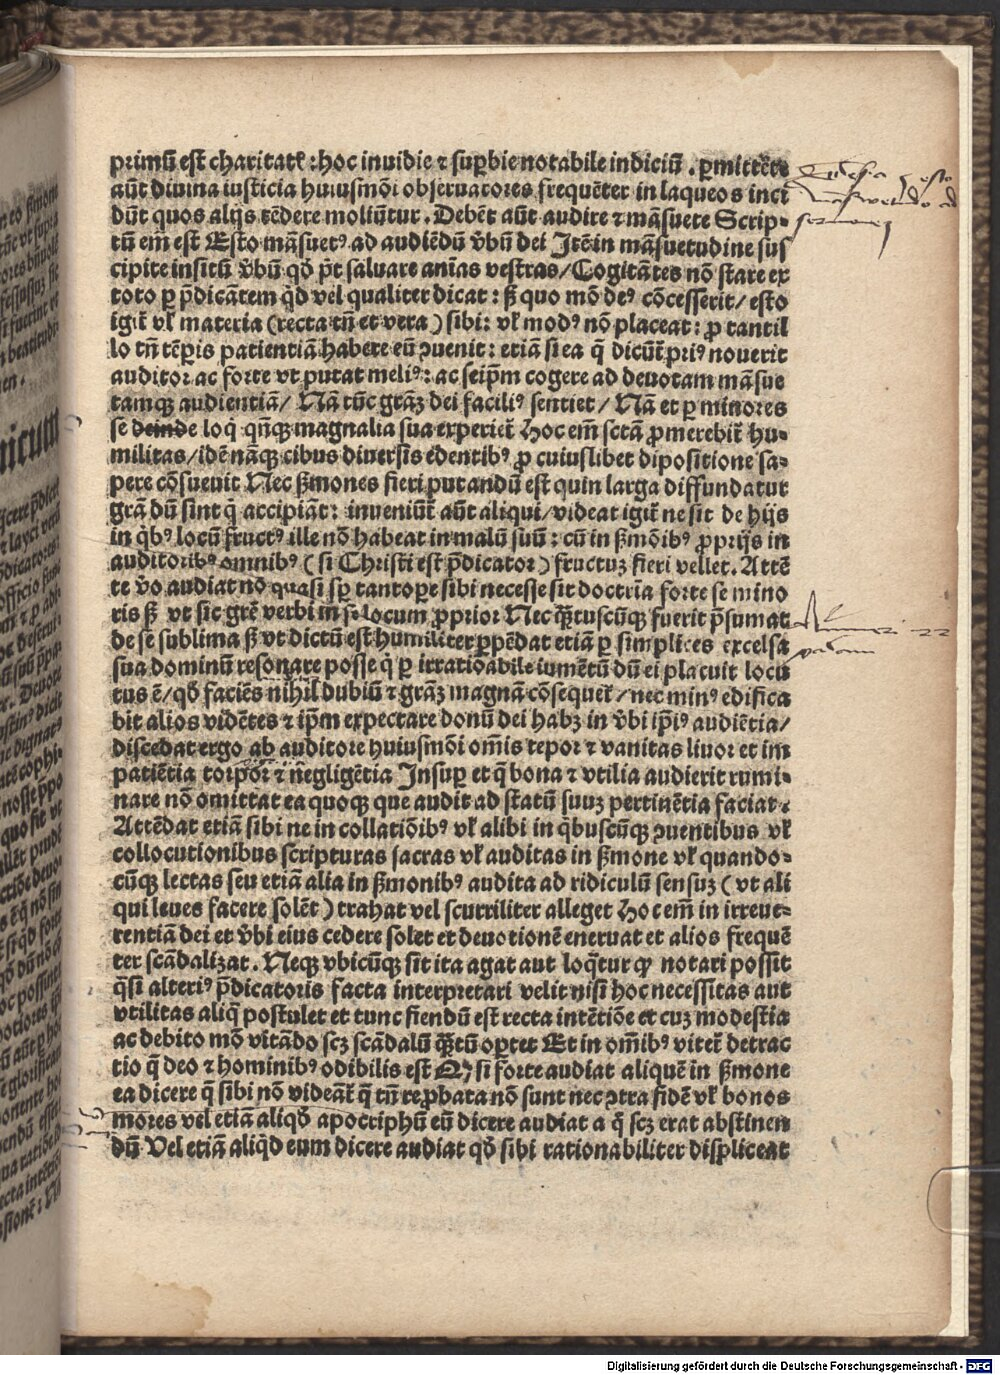 primũ eſt charitatẽ : hoc inuidie ⁊ ſuꝑbie notabile indiciũ . ꝑmittẽte
aũt diuina iuſticia huiuſmõi obſeruatores frequẽter in laqueos inci
dũt quos alijs tẽdere moliũtur . Debẽt aũt audire ⁊ mãſuete Scrip-
tũ em̃ eſt Eſto mãſuetꝰ ad audiẽdũ v̓bũ dei Itẽ in mãſuetudine ſuſ
cipite inſitũ v̓bũ qd̓ pt̃ ſaluare anĩas veſtras / Cogitãtes nõ ſtare ex
toto ꝑ p̃dicãtem qd̓ vel qualiter dicat : ſꝫ quo mõ deꝰ cõceſſerit / eſto
igit̃ vl̓ materia ( recta tñ et vera ) ſibi : vl̓ modꝰ nõ placeat : ꝓ tantil
lo tñ tẽpis patientiã habere eũ ꝯuenit : etiã ſi ea q̃ dicũt̃ priꝰ nouerit
auditor ac forte vt putat meliꝰ : ac ſeip̃m cogere ad deuotam mãſue
tamqꝫ audientiã / Nã tũc grãꝫ dei faciliꝰ ſentiet / Nã et ꝑ minores
ſe deinde loq̓ qñqꝫ magnalia ſua experiet̃ Hoc em̃ ſctã ꝓmerebit̃ hu-
militas / idẽ nãqꝫ cibus diuerſis edentibꝰ ꝓ cuiuſlibet dipoſitione ſa-
pere cõſueuit Nec ẜmones fieri putandũ eſt quin larga diffundatur
grã dũ ſint q̓ accipiãt : inueniũt̃ aũt aliqui / videat igit̃ ne ſit de hijs
in qb̓ꝰ locũ fructꝰ ille nõ habeat in malũ ſuũ : cũ in ẜmõibꝰ ꝓprijs in
auditoribꝰ omnibꝰ ( ſi Chriſti eſt p̃dicator ) fructuꝫ fieri vellet . Attẽ
te v̓o audiat nõ quaſi ſꝑ tantope ſibi neceſſe ſit doctrĩa forte ſe mino
ris ſꝫ vt ſic grẽ verbi in ſe locum ꝓprior Nec q̃tuſcũqꝫ fuerit p̃ſumat
de ſe ſublima ſꝫ vt dictũ eſt humiliter ꝑpẽdat etiã ꝑ ſimplices excelſa
ſua dominũ reſonare poſſe q̓ ꝑ irratiõabile iumẽtũ dũ ei placuit locu
tus ẽ / qd̓ faciẽs nihil dubiũ ⁊ grãꝫ magnã cõſequet̃ / nec minꝰ edifica
bit alios vidẽtes ⁊ ip̃m expectare donũ dei habꝫ in v̓bi ip̃iꝰ audiẽtia /
diſcedat ergo ab auditore huiuſmõi om̃is tepor ⁊ vanitas liuor et im
patiẽtia torpor ⁊ negligẽtia Inſuꝑ et q̃ bona ⁊ vtilia audierit rumi-
nare nõ omittat ea quoqꝫ que audit ad ſtatũ ſuuꝫ pertinẽtia faciat .
Attẽdat etiã ſibi ne in collatiõibꝰ vl̓ alibi in qb̓uſcũqꝫ ꝯuentibus vl̓
collocutionibus ſcripturas ſacras vl̓ auditas in ẜmone vl̓ quando-
cũqꝫ lectas ſeu etiã alia in ẜmonibꝰ audita ad ridiculũ ſenſuꝫ ( vt ali
qui leues facere ſolẽt ) trahat vel ſcurriliter alleget Hoc em̃ in irreue-
rentiã dei et v̓bi eius cedere ſolet et deuotionẽ eneruat et alios frequẽ
ter ſcãdalizat . Neqꝫ vbicũqꝫ ſit ita agat aut loq̃tur ꝙ notari poſſit
q̃ſi alteriꝰ p̃dicatoris facta interpretari velit niſi hoc neceſſitas aut
vtilitas aliq̃ poſtulet et tunc fiendũ eſt recta intẽtiõe et cuꝫ modeſtia
ac debito mõ vitãdo ſcꝫ ſcãdalũ q̃tũ oportet Et in om̃ibꝰ vitet̃ detrac
tio q̃ deo ⁊ hominibꝰ odibilis eſt Qꝫ ſi forte audiat aliquẽ in ẜmone
ea dicere q̃ ſibi nõ videãt̃ q̃ tñ reprobata nõ ſunt nec ꝯtra fidẽ vl̓ bonos
mores vel etiã aliqd̓ apocriphũ eũ dicere audiat a q̓ ſcꝫ erat abſtinen
dũ Vel etiã aliqd̓ eum dicere audiat qd̓ ſibi rationabiliter diſpliceat
esto
mansuetudo ad
22
Digitalisierung gefördert durch die Deutsche Forschungsgemeinschaft - DFG